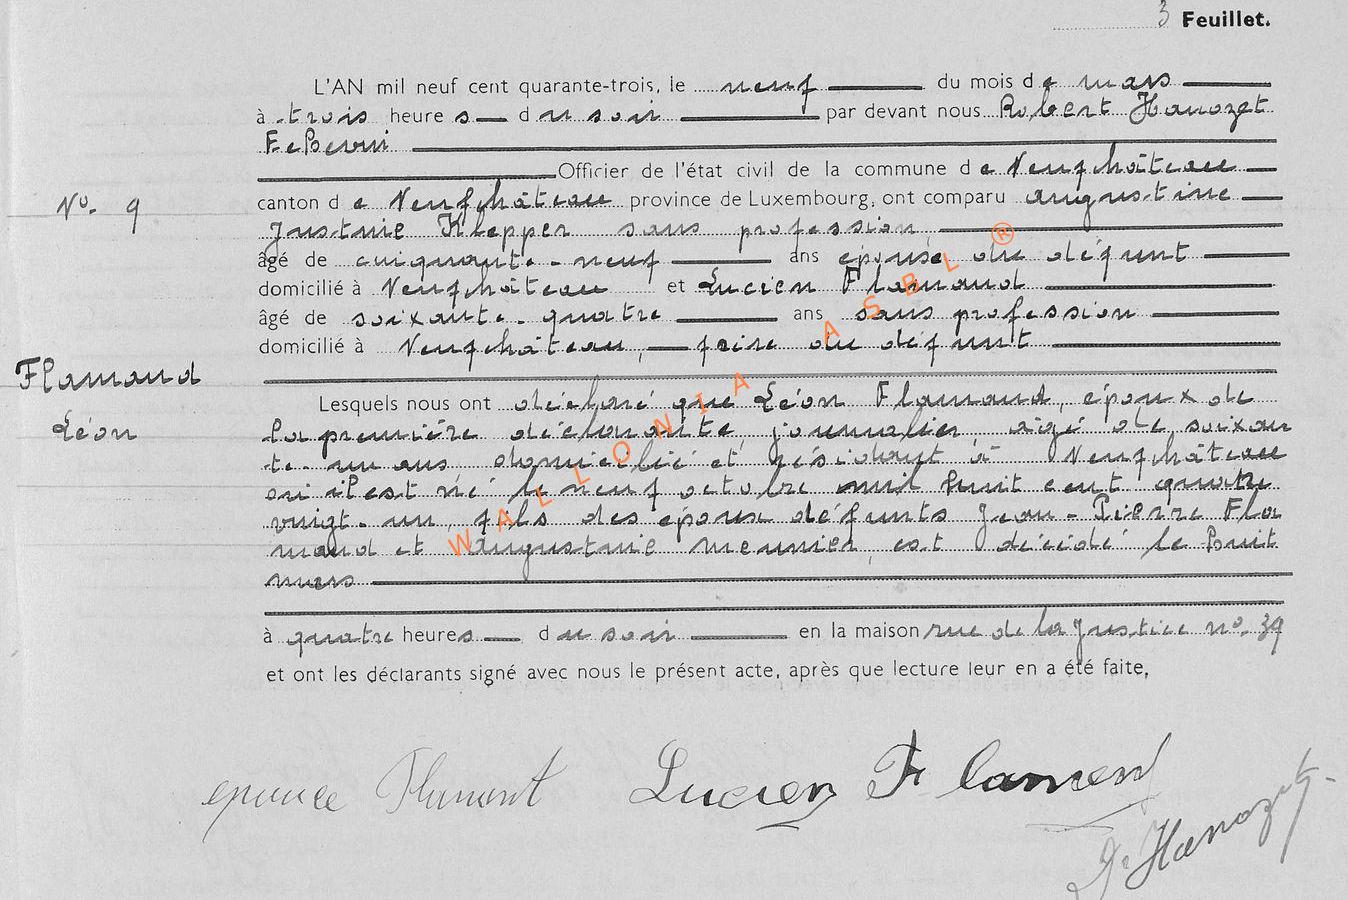 3 Feuillet.
L'AN mil neuf cent quarante-trois, le neuf du mois de mars
à trois heures du soir par devant nous Robert Hanozet
Officier de l'état civil de la commune de Neufchâteau
No. 9
canton de Neufchâteau province de Luxembourg, ont comparu Augustine
Justine Klepper sans profession
âgé de cinquante-neuf ans épouse du défunt
domicilié à Neufchâteau et Lucien Flamand
âgé de soixante-quatre ans sans profession
domicilié à Neufchâteau, frère du défunt
Flamand
Léon
Lesquels nous ont déclaré que Léon Flamand, époux de
la première déclarante, journalier, âgé de soixan
te-un ans, domicilié et résidant à Neufchâteau
où il est né le neuf octobre mil huit cent quatre
vingt-un, fils des époux défunts Jean-Pierre Fla
mand et Augustine Meunier, est décédé le huit
mars
à quatre heures du soir en la maison rue de la Justice no. 39
et ont les déclarants signé avec nous le présent acte, après que lecture leur en a été faite,
Lucien Flament
Hanozet
WALLONIA ASBL ®